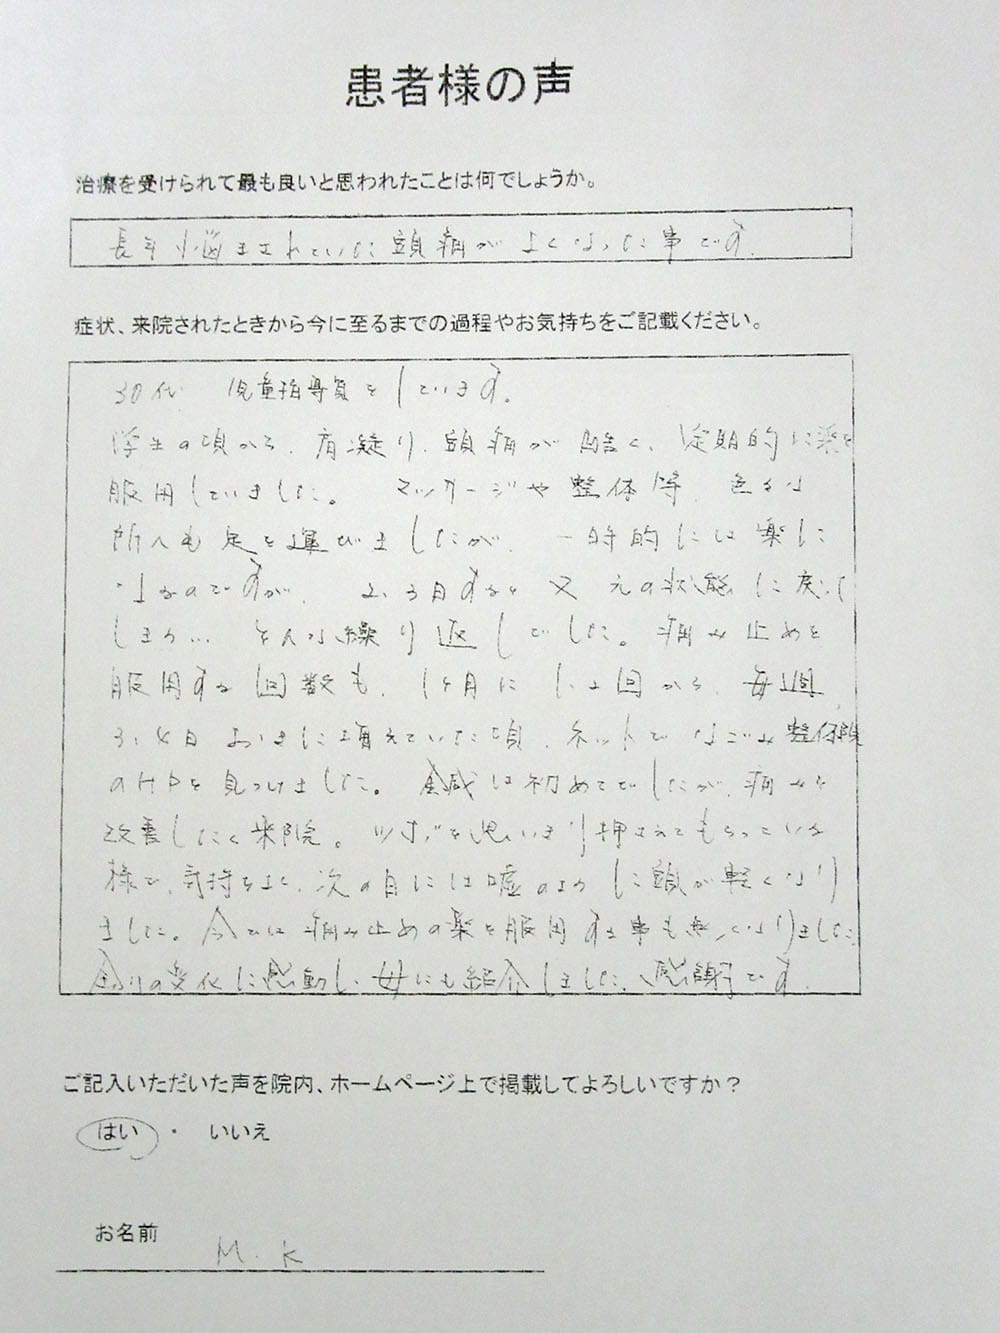 患者様の声
治療を受けられて最も良いと思われたことは何でしょうか。
長年悩まされていた頭痛がよくなった事です。
症状、来院されたときから今に至るまでの過程やお気持ちをご記載ください。
30代 児童指導員をしています。
学生の頃から、肩凝り、頭痛が酷く、定期的に薬を
服用していました。 マッサージや整体等、色々な
所へも足を運びましたが、一時的には楽に
なるのですが、2、3日すると又元の状態に戻って
しまう… そんな繰り返しでした。痛み止めを
服用する回数も、1ヶ月に1、2回から、毎週、
3、4日おきに増えていった頃、ネットでなごみ整体院
のHPを見つけました。 鍼は初めてでしたが、痛みを
改善したく来院。ツボを思いきり押さえてもらっている
様で、気持ちよく、次の日には嘘のように頭が軽くなり
ました。今では痛み止めの薬を服用する事も無くなりました。
余りの変化に感動し、母にも紹介しました。感謝です。
ご記入いただいた声を院内、ホームページ上で掲載してよろしいですか？
はい ・ いいえ
お名前 M.K